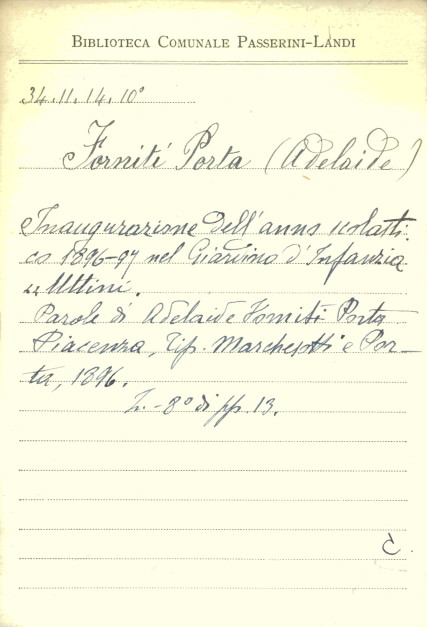 BIBLIOTECA COMUNALE PASSERINI-LANDI
34.11.14.10°
Forniti Porta (Adelaide)
Inaugurazione dell'anno scolasti
co 1896-97 nel Giardino d'Infanzia
"Uttini.
Parole di Adelaide Forniti Porta
Piacenza, Tip. Marchesotti e Por-
ta, 1896.
8° di pp. 13.
C.